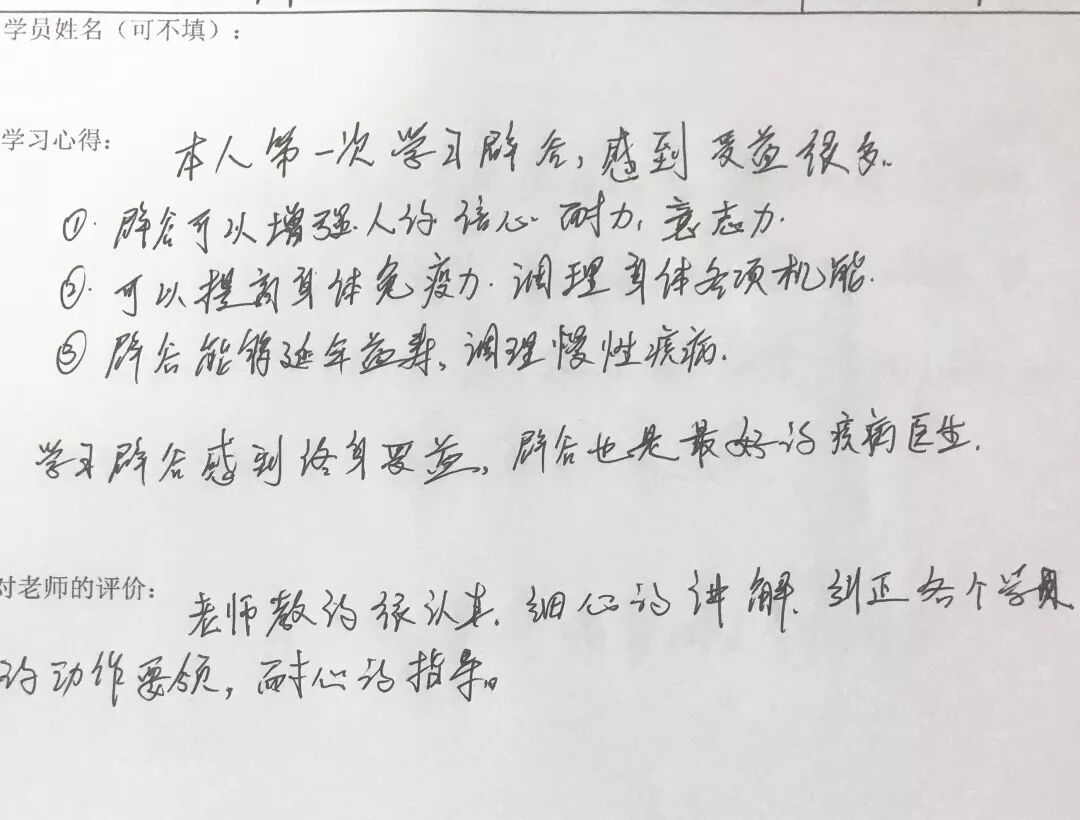 学员姓名（可不填）：
学习心得： 本人第一次学习辟谷，感到受益很多。
①. 辟谷可以增强人的信心 耐力，意志力.
②. 可以提高身体免疫力. 调理身体各项机能.
③ 辟谷能够延年益寿，调理慢性疾病.
学习辟谷感到终身受益，辟谷也是最好的疾病医生.
对老师的评价： 老师教的很认真. 细心的讲解. 纠正各个学员
的动作要领，耐心的指导。